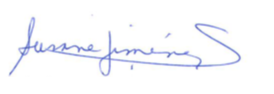 Susana Jiménez S